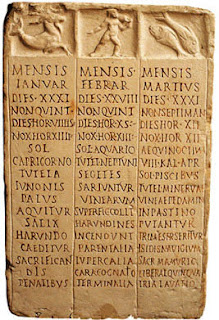 MENSIS
IANVAR
DIES·XXXI
NON·QVINT
DIES·HOR·VIIII S
NOX·HOR·XIIII S
SOL
CAPRICORNO
TVTELA
IVNONIS
PALVS
AQVITVR
SALIX
HARVNDO
CAEDITVR
SACRIFICAN
DIS
PENATIBVS
MENSIS·
FEBRAR
DIES·XXVIII
NON·QVINT
DIES·HOR·X S
NOX·HOR·XIII S
SOL·AQVARIO
TVTEL·NEPTVNI
SEGETES
SARIVNTVR
VINEARVM
SVPERFIC·COLIT
HARVNDINES
INCENDVNT
PARENTALIA
LVPERCALIA
CARA·COGNATIO
TERMINALIA
MENSIS
MARTIVS
DIES·XXXI
NON·SEPTIMAN
DIES·HOR·XII
NOX·HOR·XII
AEQVINOCTIVM
VIII·KAL·APR
SOL·PISCIBVS
TVTEL·MINERVAE
VINEAE·PEDAMIN
IN·PASTINO
PVTANTVR
TRIMESTR·SERITVR
ISIDIS·NAVIGIVM
SACR·MAMVRIO
LIBERAL·QVINQVA
TRIA·LAVATIO